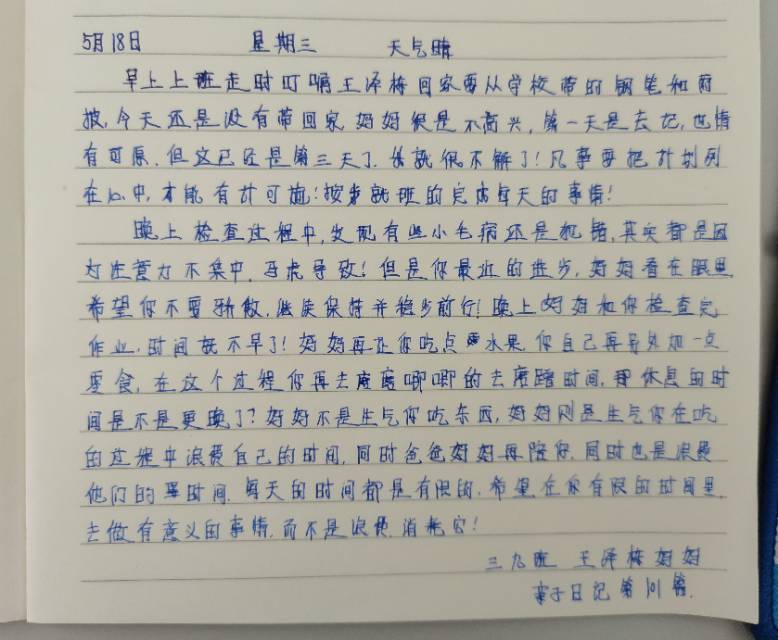 5月18日 星期三 天气晴
早上上班走时叮嘱王泽梅回家要从学校带的钢笔和雨
披,今天还是没有带回家,妈妈很是不高兴,第一天是忘记,也情
有可原.但这已经是第三天了.妈就很不解了!凡事要把计划列
在心中,才能有计可施!按步就班的完成每天的事情!
晚上检查过程中,发现有些小毛病还是犯错,其实都是因
为注意力不集中.马虎导致!但是你最近的进步,妈妈看在眼里
希望你不要骄傲.继续保持并稳步前行!晚上妈妈和你检查完
作业.时间就不早了!妈妈再让你吃点水果.你自己再另外加一点
零食,在这个过程你再去磨磨唧唧的去磨蹭时间,那休息的时
间是不是更晚了?妈妈不是生气你吃东西,妈妈则是生气你在吃
的过程中浪费自己的时间,同时爸爸妈妈再陪你.同时也是浪费
他们的时间.每天的时间都是有限的.希望在你有限的时间里.
去做有意义的事情.而不是浪费.消耗它!
三九班 王泽梅妈妈
亲子日记第101篇.